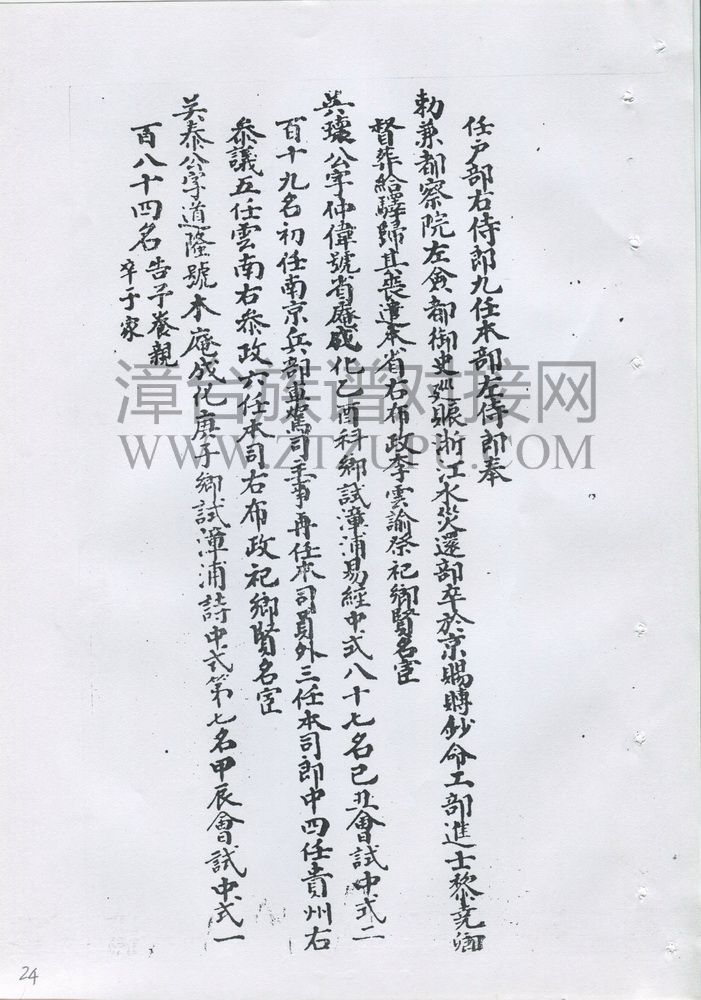 任戶部右侍郎九任本部左侍郎奉
勅兼都察院左僉都御史廵賑浙江水災還部卒於京賜賻鈔命工部進士黎堯卿
督葬給驛歸其喪遣本省右布政李雲諭祭祀鄉賢名宦
吳瓌公字仲偉號省庵成化乙酉科鄉試漳浦易經中式八十七名己丑會試中式二
百十九名初任南京兵部車駕司主事再任本司員外三任本司郎中四任貴州右
參議五任雲南右參政六任本司右布政祀鄉賢名宦
吳泰公字道隆號木庵成化庚子鄉試漳浦詩中式第七名甲辰會試中式一
百八十四名告予養親
卒于家
漳台族谱对接网
WWW.ZTZUPU.COM
24